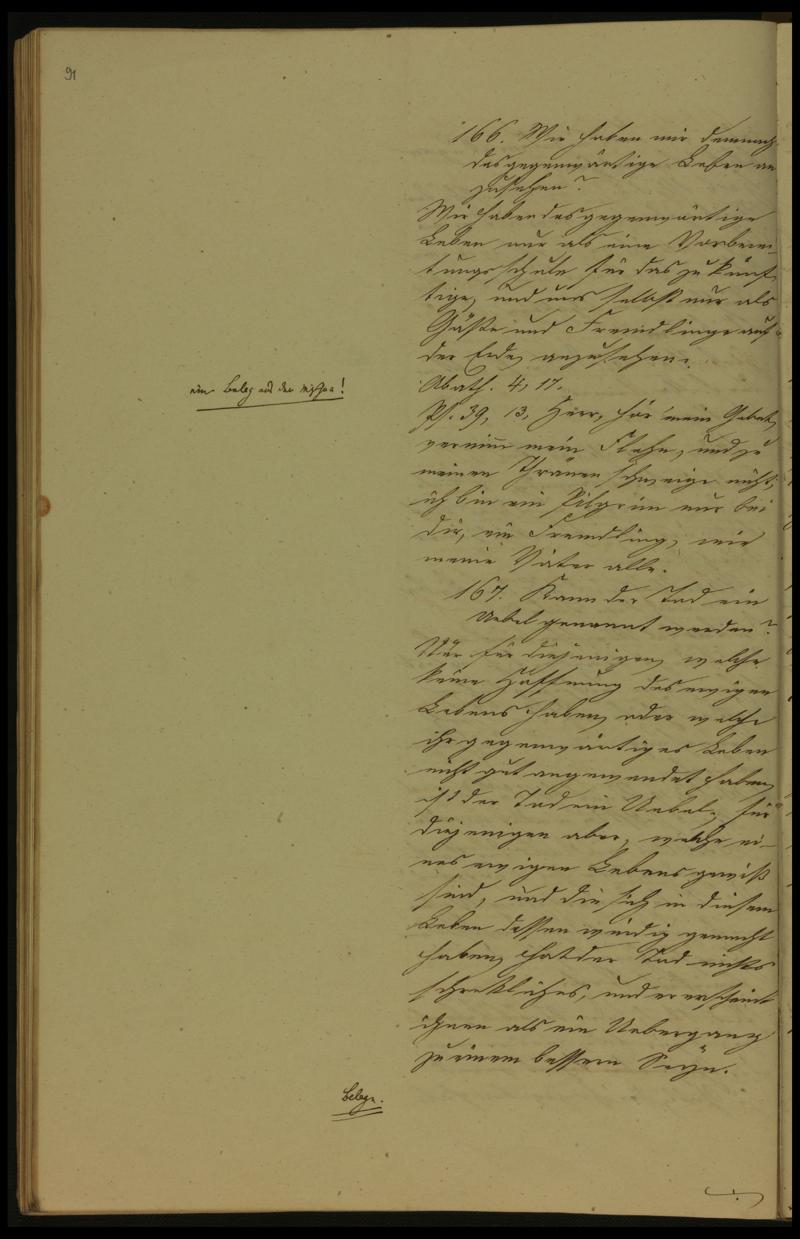 91
166. Wie haben wir demnach
das gegenwärtige Leben an
zusehen?
Wir haben das gegenwärtige
Leben nur als eine Vorberei-
tungsschule für das zukünf
tige, und uns selbst nur als
Gäste und Fremdlinge auf
der Erde, anzusehen.
ein Beleg aus der Mischna!
Aboth. 4, 17.
Ps. 39, 13, Herr, hör mein Gebet,
vernimm mein Flehn, und zu
meinen Thränen schweige nicht,
ich bin ein Pilgrim nur bei
dir, ein Fremdling, wie
meine Väter alle.
167. Kann der Tod ein
Uebel genannt werden?
Nur für diejenigen, welche
keine Hoffnung des ewigen
Lebens haben, oder welche
ihr gegenwärtiges Leben
nicht gut angewendet haben,
ist der Tod ein Uebel, für
diejenigen aber, welche ei-
nes ewigen Lebens gewiß
sind, und die sich in diesem
Leben dessen würdig gemacht
haben, hat der Tod nichts
schrekliches, und er erscheint
ihnen als ein Uebergang
zu einem bessern Seÿn.
Belege.